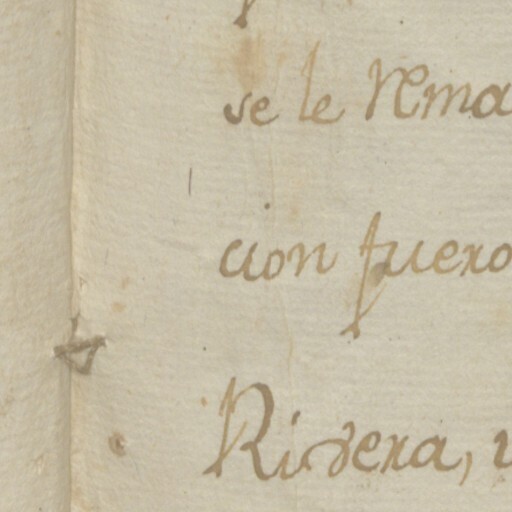 se le Rema
cion fuero
Rivera,